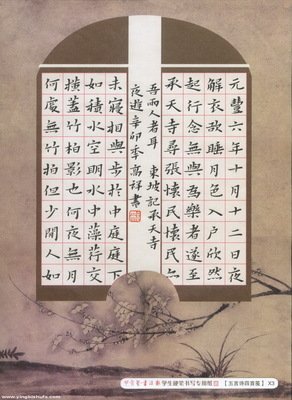 元豐六年十月十二日夜
解衣欲睡月色入户欣然
起行念無與為樂者遂至
承天寺尋張懷民懷民亦
未寢相與步於中庭庭下
如積水空明水中藻荇交
橫蓋竹柏影也何夜無月
何處無竹柏但少閒人如
吾兩人者耳 東坡記承天寺
夜遊辛卯季高祥書
学生硬笔书写专用纸 【五言诗四首笺】 X3
www.yingbishufa.com